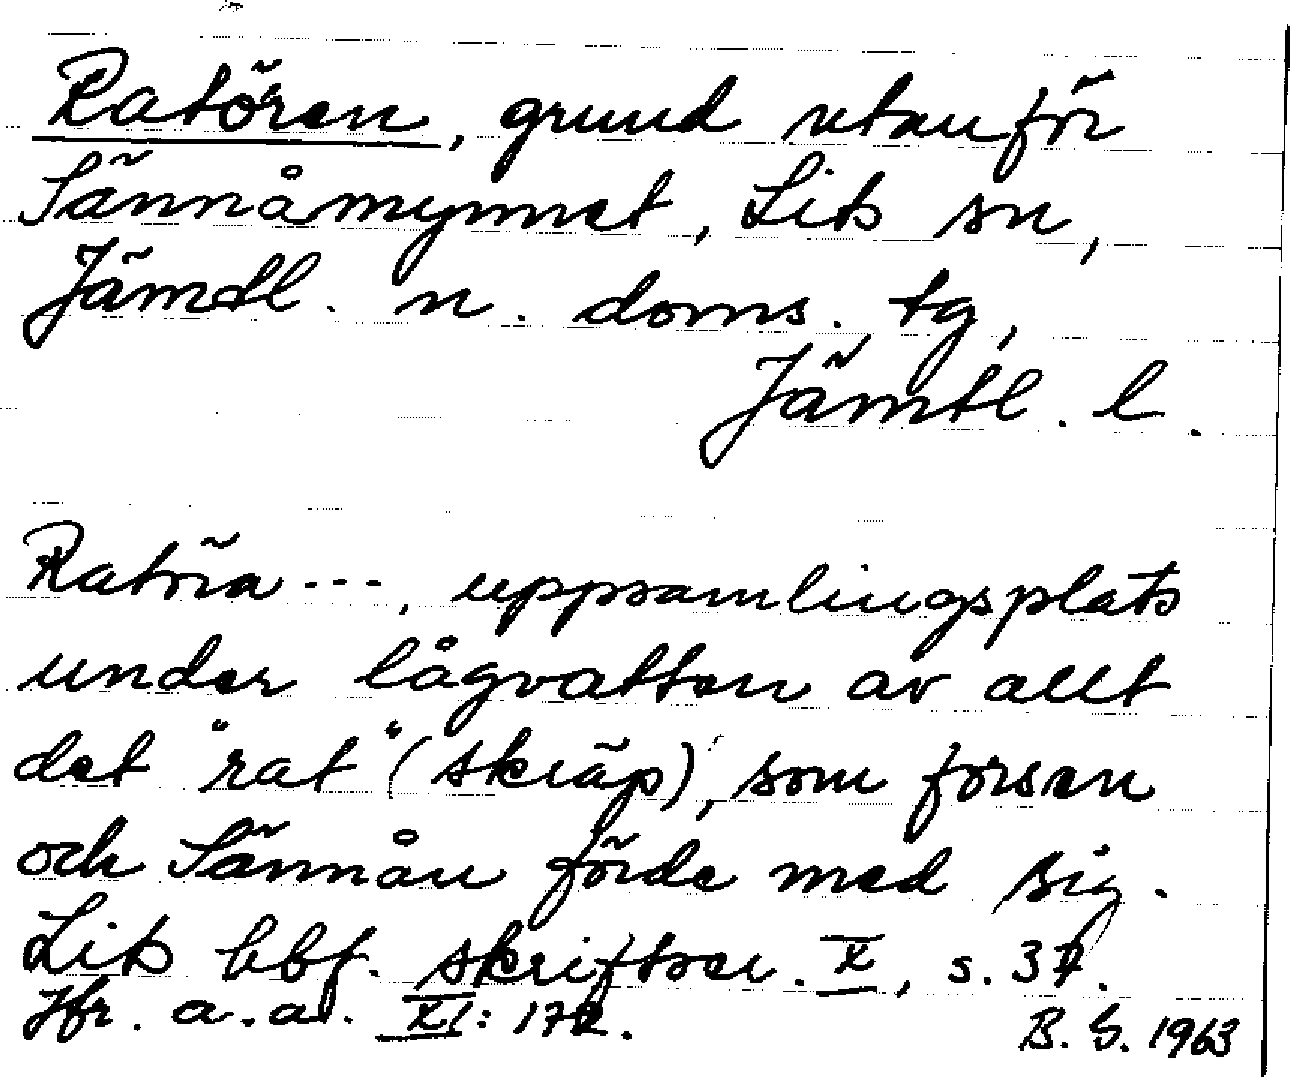 Ratören, grund utanför
Sännåmynnet, Lits sn,
Jämtl. n. doms. tg,
Jämtl. l.
Ratöra ---, uppsamlingsplats
under lågvatten av allt
det "rat" (skräp), som forsen
och Sännån förde med sig.
Lits hbf. skriftser. X, s. 37.
Jfr. a.a. XI: 172.
B. S. 1963